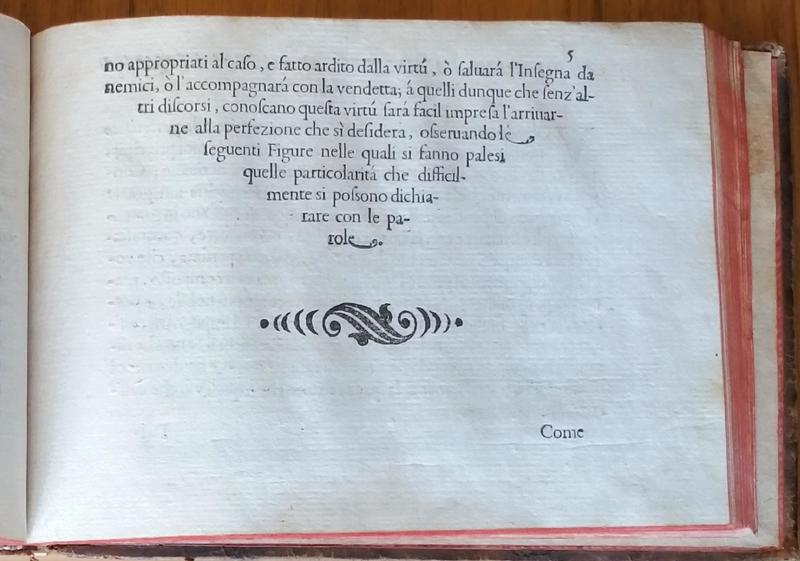 5
no appropriati al caſo, e fatto ardito dalla virtú, ò ſaluará l'Inſegna da
nemici, ò l'accompagnará con la vendetta; á quelli dunque che ſenz'al-
tri diſcorsi, conoſcano queſta virtú ſará facil impreſa l'arriuar-
ne alla perfezione che sì deſidera, oſſeruando le
ſeguenti Figure nelle quali si fanno palesi
quelle particolaritá che difficil-
mente si poſſono dichia-
rare con le pa-
role.
Come